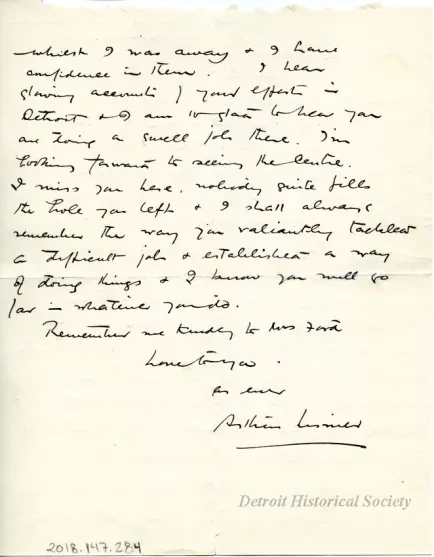 —whilst I was away & I have
confidence in them. I hear
glowing accounts of your efforts in
Detroit & I am so glad to hear you
are doing a swell job there. I'm
looking forward to seeing the Centre.
I miss you here, nobody quite fills
the hole you left & I shall always
remember the way you valiantly tackled
a difficult job & established a way
of doing things & I know you will go
far in whatever you do.
Remember me kindly to Mrs Ford
Love to you.
as ever
Arthur Lismer
Detroit Historical Society
2018.147.284